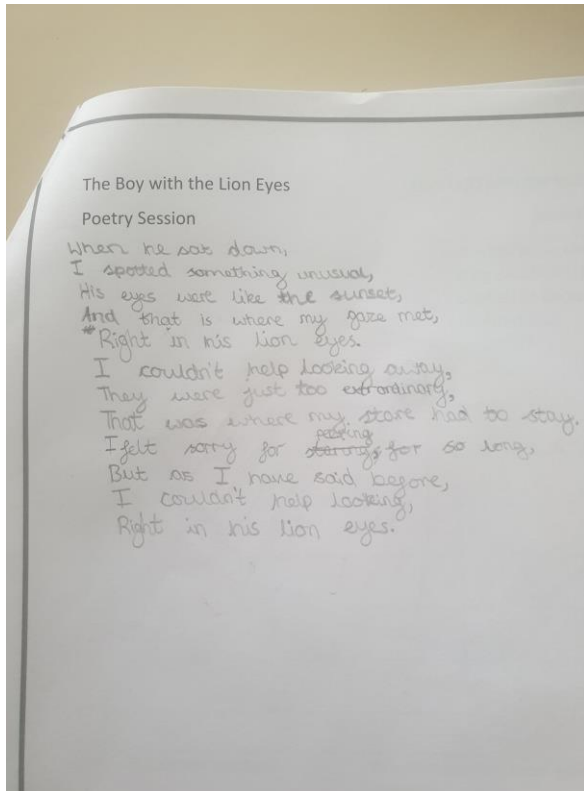 The Boy with the Lion Eyes
Poetry Session
When he sat down,
I spotted something unusual,
His eyes were like the sunset,
And that is where my gaze met,
Right in his lion eyes.
I couldn't help looking away,
They were just too extrordinary,
That was where my stare had to stay.
I felt sorry for peering, for so long,
But as I have said before,
I couldn't help looking,
Right in his lion eyes.